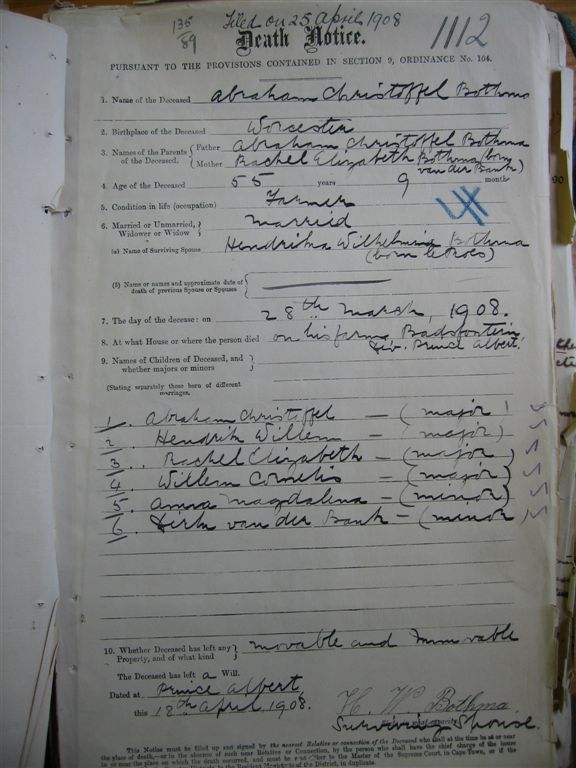 135/89 Filed on 25 April 1908
1112
Death Notice.
PURSUANT TO THE PROVISIONS CONTAINED IN SECTION 9, ORDINANCE No. 104.
1. Name of the Deceased Abraham Christoffel Bothma
2. Birthplace of the Deceased Worcester
3. Names of the Parents of the Deceased. { Father Abraham Christoffel Bothma
Mother Rachel Elizabeth Bothma (born van der Bank)
4. Age of the Deceased 55 years 9 month
5. Condition in life (occupation) Farmer
6. Married or Unmarried, Widower or Widow } Married
(a) Name of Surviving Spouse Hendrika Wilhelmina Bothma
(born le Roes)
(b) Name or names and approximate date of death of previous Spouse or Spouses
7. The day of the decease: on 28th March, 1908.
8. At what House or where the person died on his farm Badsfontein
Div. Prince Albert.
9. Names of Children of Deceased, and whether majors or minors }
(Stating separately those born of different marriages.
1. Abraham Christoffel — (major)
2. Hendrik Willem — (major)
3. Rachel Elizabeth — (major)
4. Willem Cornelis — (major)
5. Anna Magdalena — (minor)
6. Dirk van der Bank — (minor)
10. Whether Deceased has left any Property, and of what kind } movable and immovable
The Deceased has left a Will.
Dated at Prince Albert
this 18th April 1908.
H. W. Bothma
Surviving Spouse.
This Notice must be filled up and signed by the nearest Relative or connection of the Deceased who shall at the time be at or near
the place of death,—or in the absence of such near Relative or Connection, by the person who shall have the chief charge of the house
in or near the place on which the death occurred, and must be to the Master of the Supreme Court, in Cape Town, or if the
District, in duplicate.
90